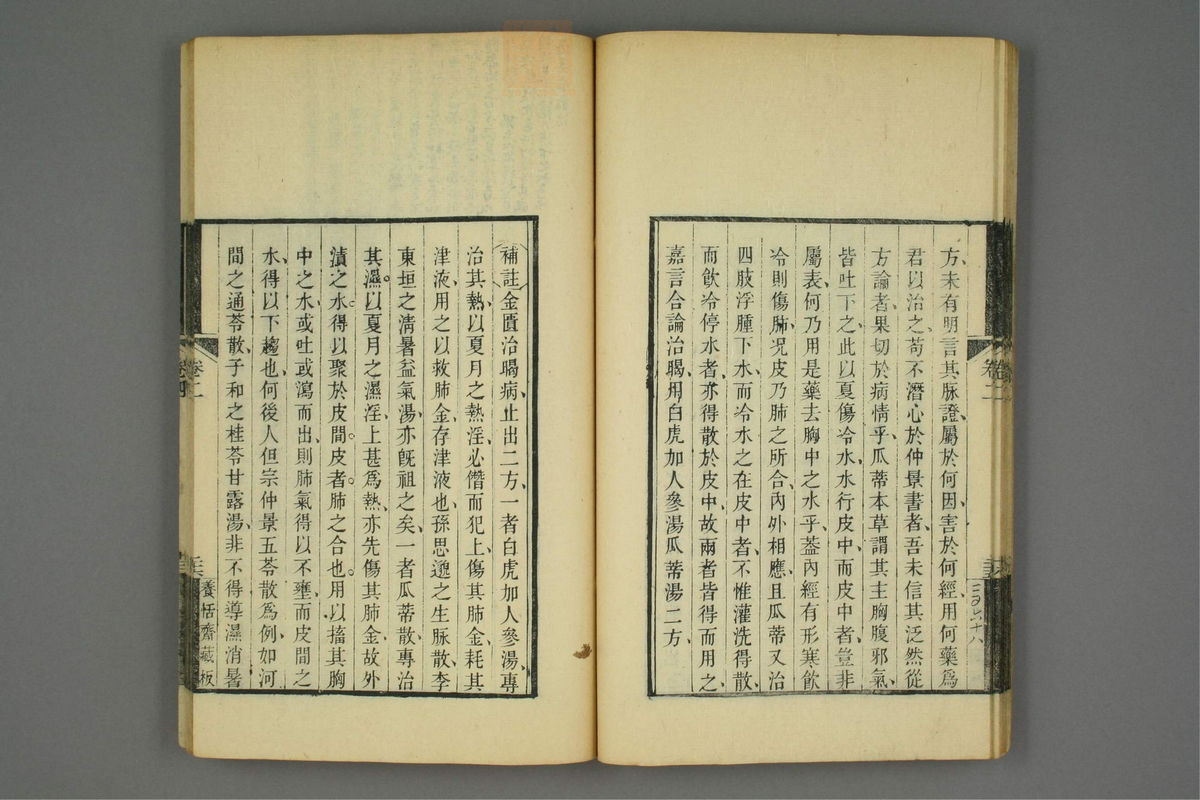 方未有明言其脉證屬於何因害於何經用何藥爲
君以治之苟不潛心於仲景書者吾未信其泛然從
方論者果切於病情乎瓜蒂本草謂其主胸腹邪氣
皆吐下之此以夏傷冷水水行皮中而皮中者豈非
屬表何乃用是藥去胸中之水乎葢內經有形寒飮
冷則傷肺况皮乃肺之所合內外相應且瓜蒂又治
四肢浮腫下水而冷水之在皮中者不惟灌洗得散
而飮冷停水者亦得散於皮中故兩者皆得而用之
嘉言合論治暍用白虎加人參湯瓜蒂湯二方
卷二
補註金匱治暍病止出二方一者白虎加人參湯專
治其熱以夏月之熱淫必僭而犯上傷其肺金耗其
津液用之以救肺金存津液也孫思邈之生脉散李
東垣之淸暑益氣湯亦旣祖之矣一者瓜蒂散專治
其濕以夏月之濕淫上甚爲熱亦先傷其肺金故外
漬之水得以聚於皮間皮者肺之合也用以搐其胸
中之水或吐或瀉而出則肺氣得以不壅而皮間之
水得以下趨也何後人但宗仲景五苓散爲例如河
間之通苓散子和之桂苓甘露湯非不得導濕消暑
卷二
養恬齋藏板